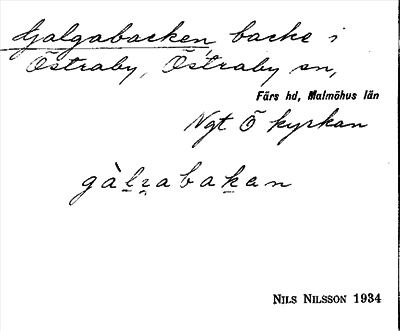 Galgabacken, backe i
Östraby, Östraby sn,
Färs hd, Malmöhus län
Ngt Ö kyrkan
gàḻʀ̱abaḵan
NILS NILSSON 1934